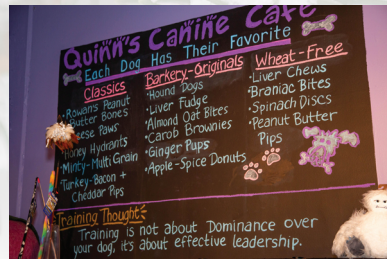 Quinn's Canine Cafe
Each Dog Has Their Favorite
Classics
Rowan's Peanut
Butter Bones
Cheese Paws
Honey Hydrants
Minty-Multi Grain
Turkey-Bacon +
Cheddar Pips
Barkery-Originals
Hound Dogs
Liver Fudge
Almond Oat Bites
Carob Brownies
Ginger Pups
Apple-Spice Donuts
Wheat-Free
Liver Chews
Braniac Bites
Spinach Discs
Peanut Butter
Pips
Training Thought:
Training is not about Dominance over
your dog, it's about effective leadership.